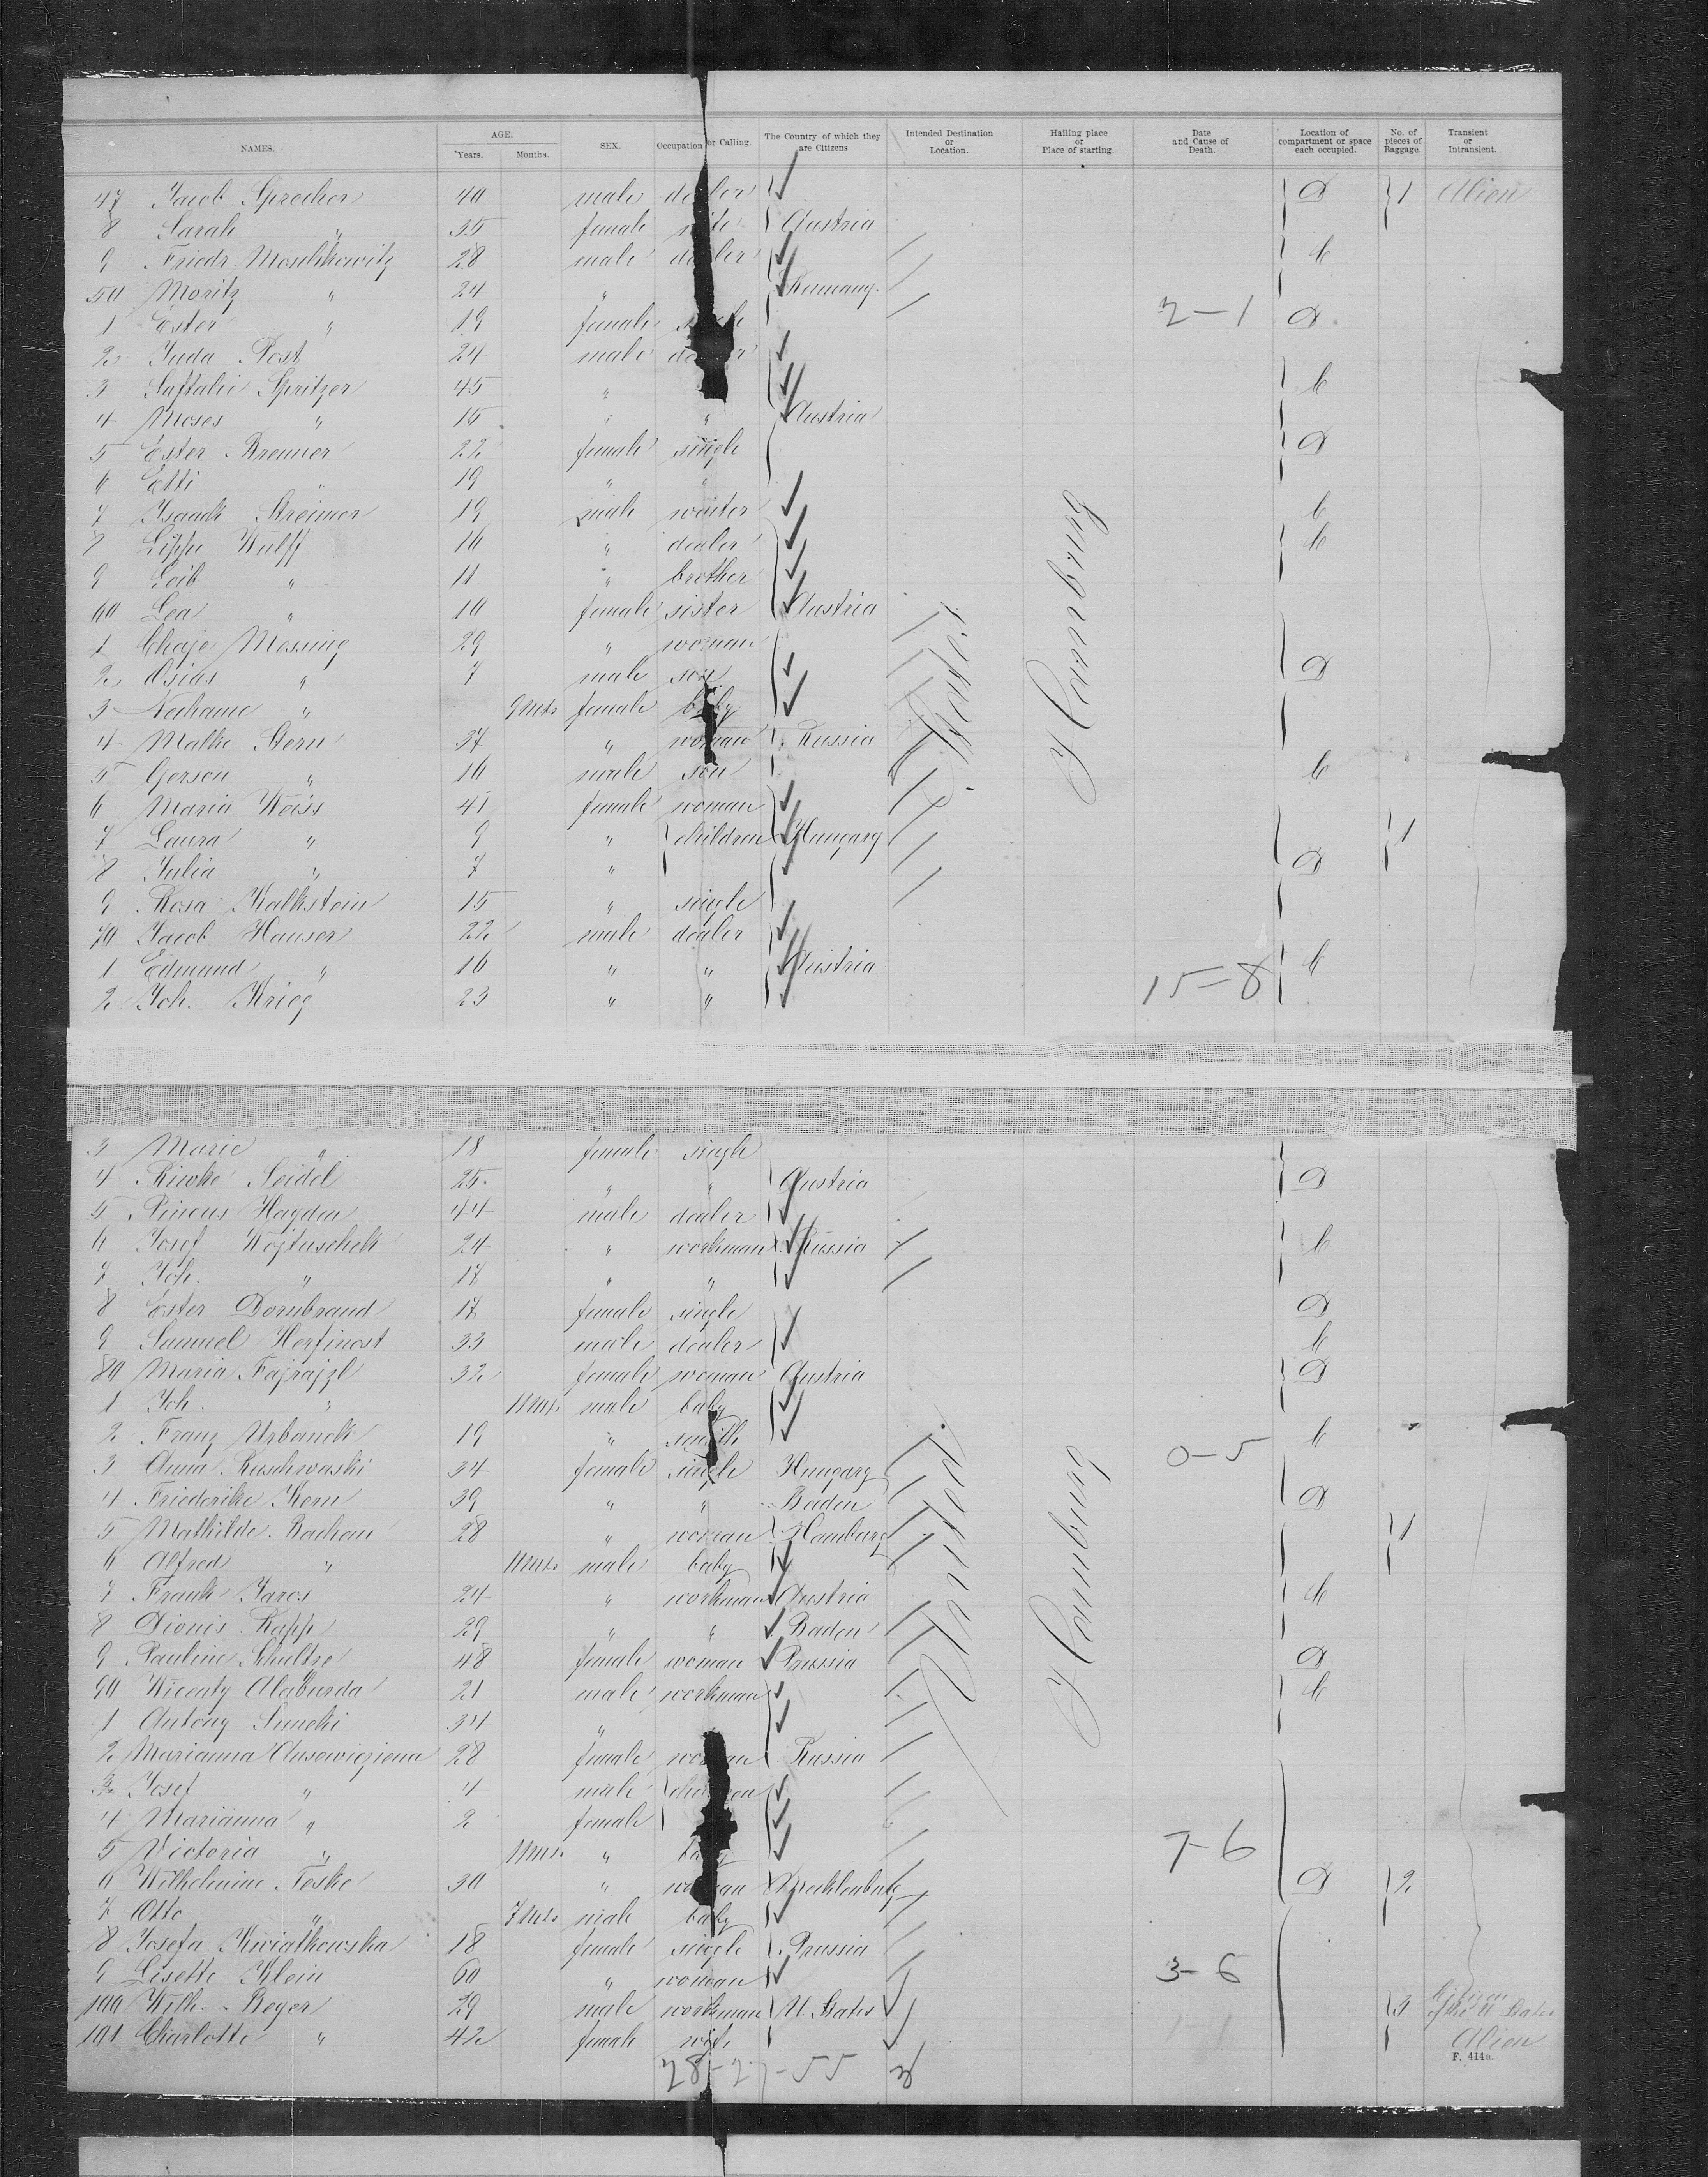 NAMES. AGE. Years. Months. SEX. Occupation or Calling. The Country of which they are Citizens Intended Destination or Location. Hailing place or Place of starting. Date and Cause of Death. Location of compartment or space each occupied. No. of pieces of Baggage. Transient or Intransient.
47 Jacob Sprecher 40 male dealer a 1 Alien
8 Sarah " 35 female wife Austria
9 Friedr. Moschkowitz 28 male dealer b
50 Moritz " 24 "
1 Ester " 19 female single 2-1 a
2 Juda Post 24 male dealer
3 Saftalie Spritzer 45 " b
4 Moses " 15 " " Austria
5 Ester Brenner 22 female single a
6 Etti " 19 " "
7 Isaack Streimer 19 male waiter b
8 Lippe Wulff 16 " dealer b
9 Leib " 11 " brother
60 Lea " 10 female sister Austria
1 Chaje Messing 29 " woman
2 Osias " 7 male son a
3 Nechame " 9 Mts female baby
4 Malke Stern 37 " woman Russia
5 Gerson " 16 male son b
6 Maria Weiss 41 female woman
7 Laura " 9 " children Hungary 1
8 Julia " 7 " a
9 Rosa Kalkstein 15 " single
70 Jacob Hauser 22 male dealer
1 Edmund " 16 " " Austria b
2 Joh. Krieg 23 " " 15-8
Hamburg
3 Marie " 18 female single
4 Riwke Seidel 25 " " Austria a
5 Pincus Hayden 44 male dealer
6 Josef Wojtaschek 24 " workman Russia b
7 Joh. " 17 " "
8 Ester Dornbrand 17 female single a
9 Samuel Herfinost 33 male dealer b
80 Maria Fajrajzl 32 female woman Austria a
1 Joh. " 11 Mts male baby
2 Franz Urbanek 19 " smith 0-5 b
3 Anna Ruschwaski 34 female single Hungary
4 Friederike Kern 39 " " Baden a
5 Mathilde Bachau 28 " woman Hamburg 1
6 Alfred " 11 Mts male baby
7 Frank Jaros 24 " workman Austria b
8 Dionis Rapp 29 " " Baden
9 Pauline Schultze 48 female woman Prussia a
90 Wicenty Alaburda 21 male workman b
1 Antony Sunecki 34 "
2 Marianna Ausewicziena 28 female woman Russia
3 Josef " 4 male children
4 Marianna " 2 female
5 Victoria " 11 Mts " baby 7-6
6 Wilhelmine Teske 30 " woman Mecklenburg a 2
7 Otto " 7 Mts male baby
8 Josefa Kwiatkowska 18 female single Prussia
9 Lisette Klein 60 " woman 3-6
100 Wilh. Beyer 29 male workman U. States 3 Citizen of the U. States
101 Charlotte " 42 female wife 1-1 Alien
F. 414a.
Hamburg
United
28-27-55